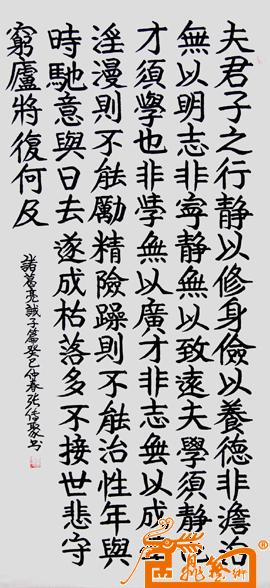 夫君子之行静以修身儉以養德非澹泊
無以明志非寧静無以致遠夫學須静也
才須學也非學無以廣才非志無以成學
淫漫則不能勵精險躁則不能治性年與
時馳意與日去遂成枯落多不接世悲守
窮廬將復何及
諸葛亮誡子篇癸巳仲春张傳聚书